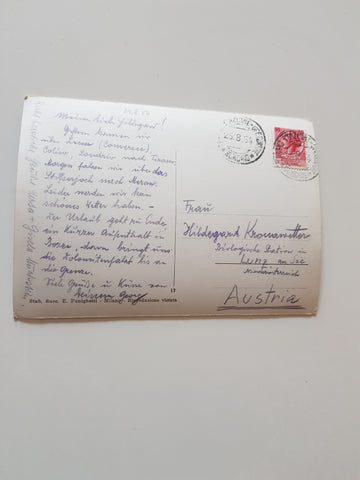 24.8.54
Meine liebe Hildegard!
Gestern kamen wir
Como,
Colico, Sondrio nach Tirano.
Morgen fahren wir über das
Stilfserjoch nach Meran.
Leider werden wir kein
schönes Wetter haben. –
Der Urlaub geht zu Ende
ein kurzer Aufenthalt in
Bozen, dann bringt uns
die Dolomitenfahrt bis an
die Grenze.
Viele Grüße u. Küsse von
Deinem Georg
17
Stab. Surc. E. Fenighetti - Milano. Riproduzione vietata
25.8.54
SONDRIO
Frau
Hildegard Kronawetter
Biologische Station in
Lunz am See
Niederösterreich
Austria